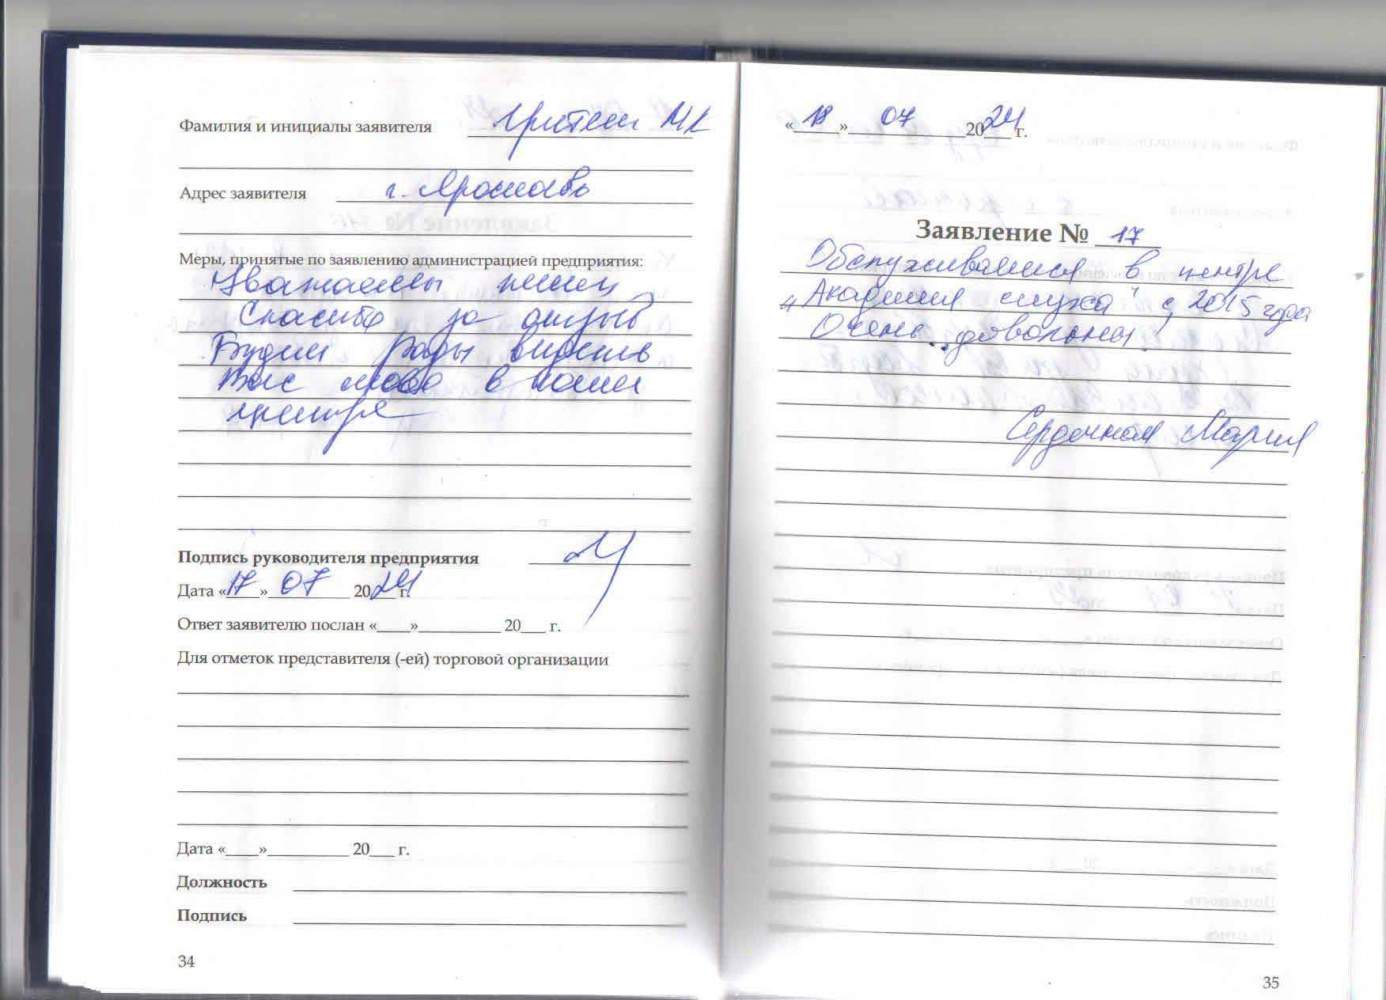 Фамилия и инициалы заявителя
Адрес заявителя г. Ярославль
Меры, принятые по заявлению администрацией предприятия:
Спасибо за отзыв
Будем рады видеть
Вас снова в нашем
центре
Подпись руководителя предприятия
Дата «17» 07 2024 г.
Ответ заявителю послан «____»__________ 20___ г.
Для отметок представителя (-ей) торговой организации
Дата «____»__________ 20___ г.
Должность
Подпись
34
«18» 07 2024 г.
Заявление № 17
Обслуживаемся в центре
„Академия слуха" с 2015 года
Очень довольны.
Сердечная Мария
35